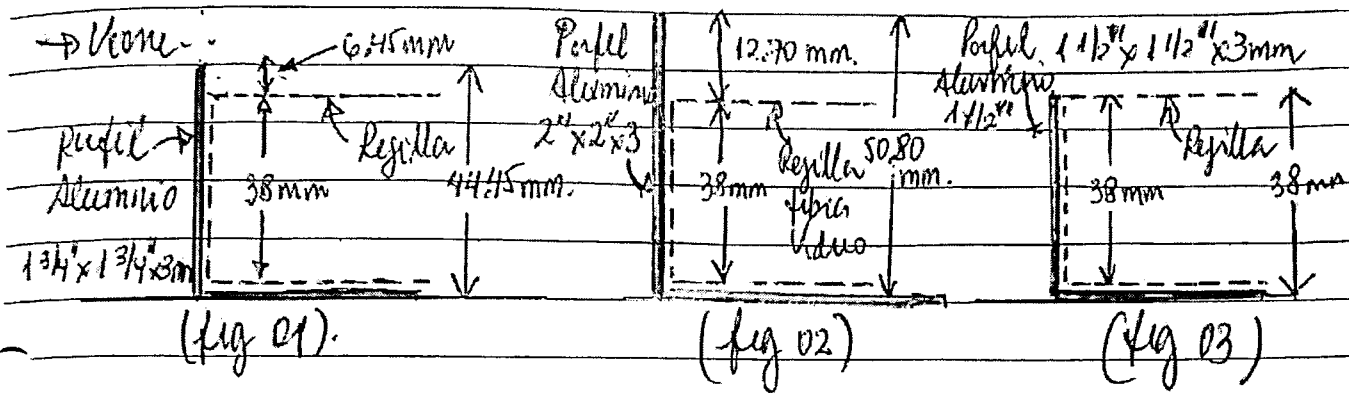 → Veone - .
6,45mm
Perfil
Aluminio
1 3/4" x 1 3/4" x 3m
38mm
Rejilla
44.45mm.
(fig 01).
Perfil
Aluminio
2" x 2" x 3
12.70 mm.
38mm
Rejilla
fibra
Vidrio
50,80
mm.
(fig 02)
Perfil 1 1/2" x 1 1/2" x 3mm
Aluminio
1 1/2"
Rejilla
38mm
38mm
(fig 03)